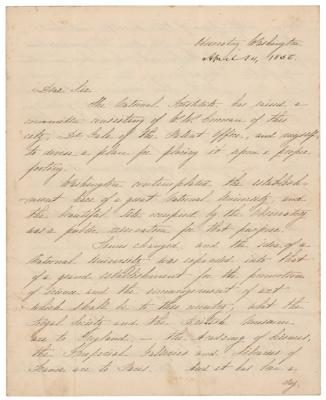 Observatory Washington
April 24, 1850.
Dear Sir
The National Institute has named a
committee consisting of of this
city, Dr Gale of the Patent Office, and myself,
to devise a plan for placing it upon a proper
footing.
Washington contemplated the establish-
ment here of a great National University, and
the beautiful site occupied by the Observatory
was a public reservation for that purpose.
Times changed, and the idea of a
National University was expanded into that
of a grand establishment for the promotion
of science and the encouragement of art
which shall be to this country, what the
Royal Society and the British Museum
are to England, — the Academy of Sciences,
the Galleries and Libraries of
France are to Paris. And it has been a